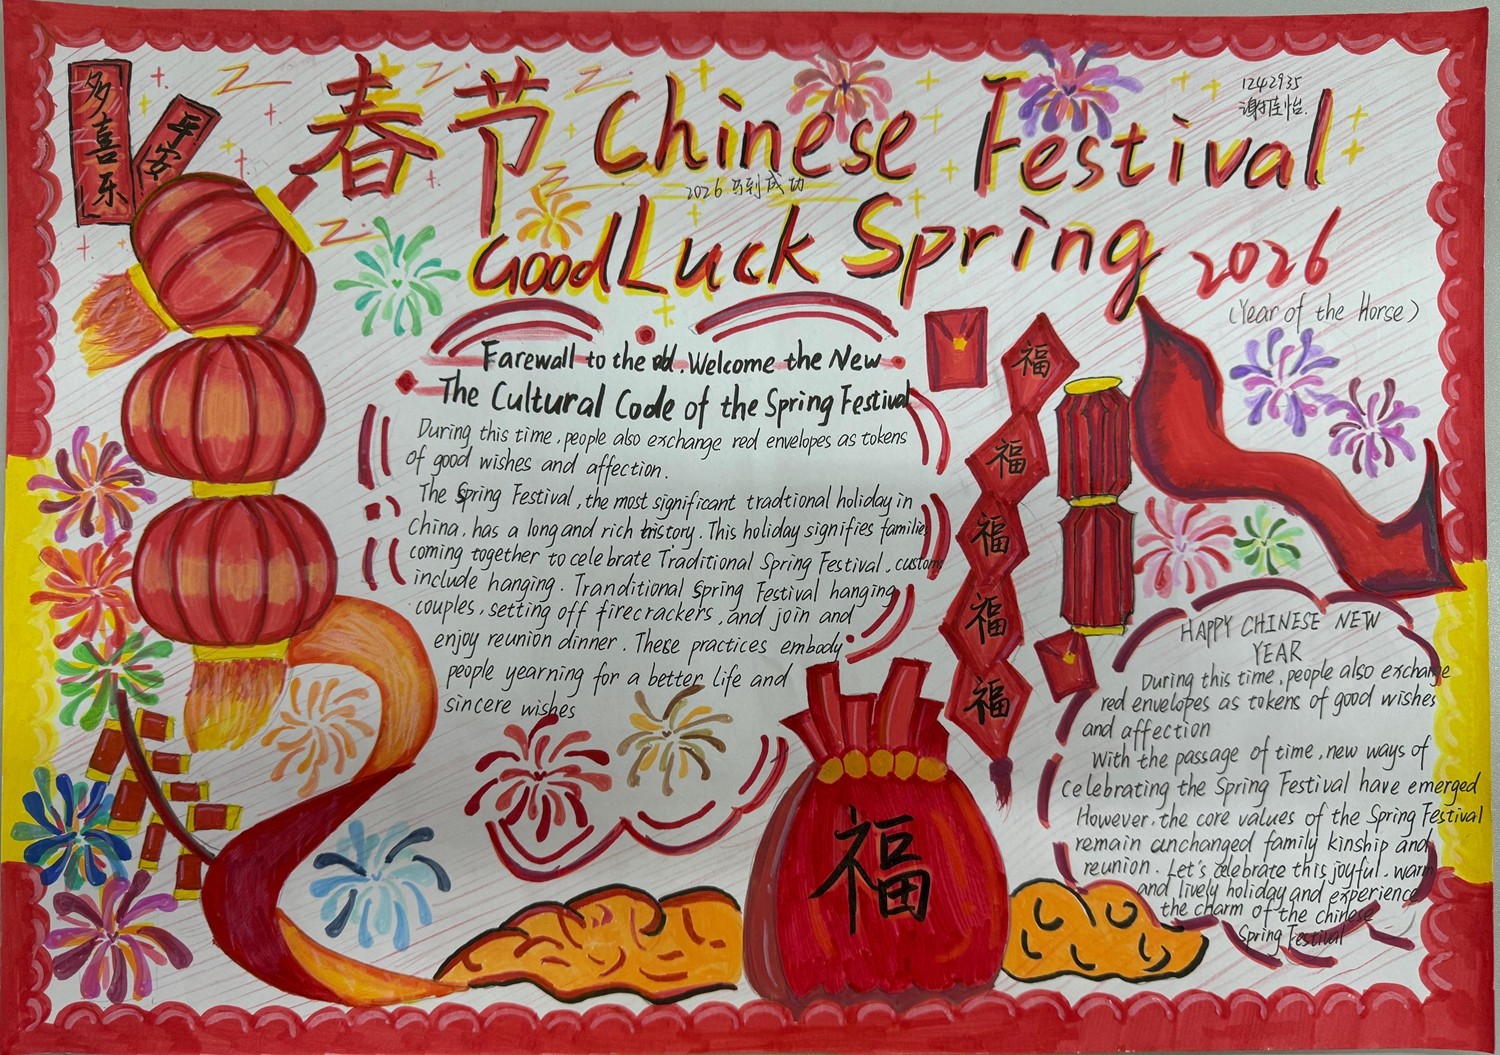 多喜乐
平安
春节 Chinese Festival
1242935
谢佳怡.
2026 马到成功
Good Luck Spring 2026
(Year of the Horse)
Farewall to the old. Welcome the New
The Cultural Code of the Spring Festival
During this time, people also exchange red envelopes as tokens
of good wishes and affection.
The Spring Festival, the most significant tradtional holiday in
China, has a long and rich history. This holiday signifies families
coming together to celebrate Traditional Spring Festival, customs
include hanging. Tranditional Spring Festival hanging
couples, setting off firecrackers, and join and
enjoy reunion dinner. These practices embody
people yearning for a better life and
sincere wishes
福
福
福
福
福
福
HAPPY CHINESE NEW
YEAR
During this time, people also exchange
red envelopes as tokens of good wishes
and affection
With the passage of time, new ways of
Celebrating the Spring Festival have emerged
However, the core values of the Spring Festival
remain unchanged family kinship and
reunion. Let's celebrate this joyful, warm
and lively holiday and experience
the charm of the chinese
Spring Festival